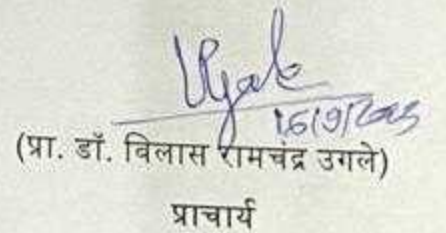 Ugale
16/9/2023
(प्रा. डॉ. विलास रामचंद्र उगले)
प्राचार्य